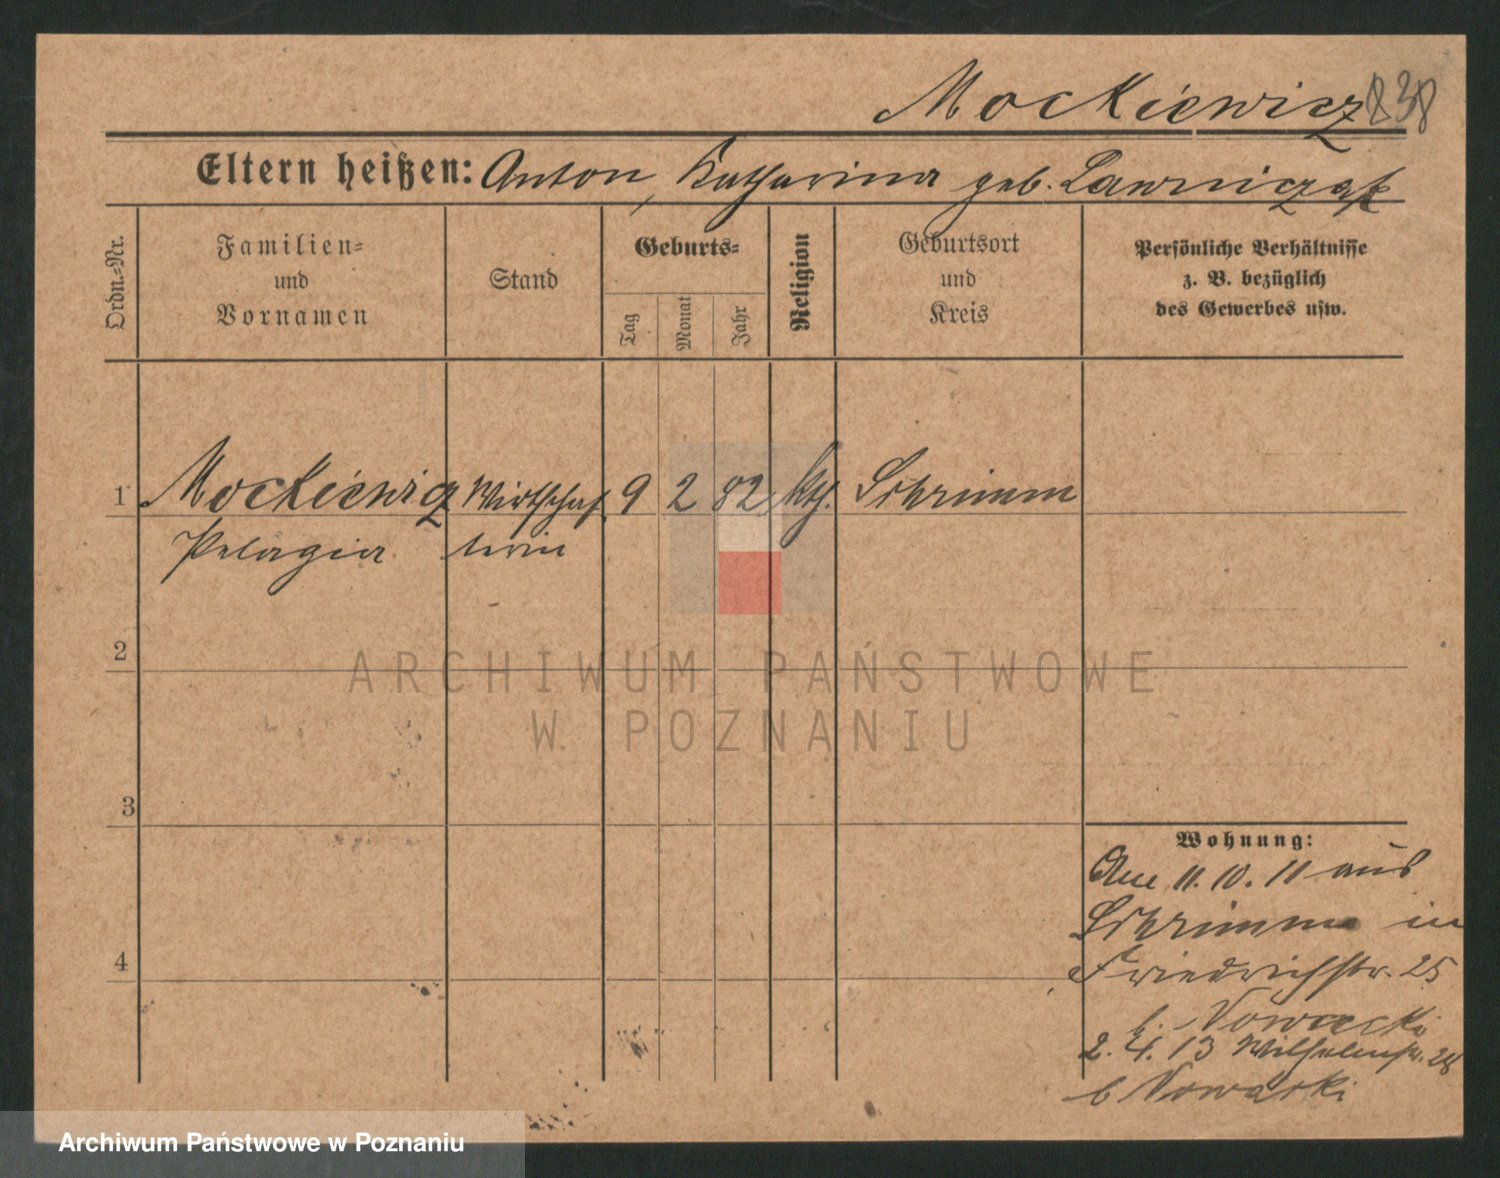 Mockiewicz 838
Eltern heißen: Anton, Katharina geb. Lawniczak
Ordn.-Nr.
Familien-
und
Vornamen
Stand
Geburts-
Tag
Monat
Jahr
Religion
Geburtsort
und
Kreis
Persönliche Verhältnisse
z. B. bezüglich
des Gewerbes usw.
1 Mockiewicz Wirtschaf 9 2 82 kth. Schrimm
Pelagia terin
2
ARCHIWUM PAŃSTWOWE
W POZNANIU
3
Wohnung:
Am 11.10.11 aus
Schrimm in
4 Friedrichstr. 25
b. Nowacki
2.4.13 Wilhelmstr. 28
b Nowacki
Archiwum Państwowe w Poznaniu